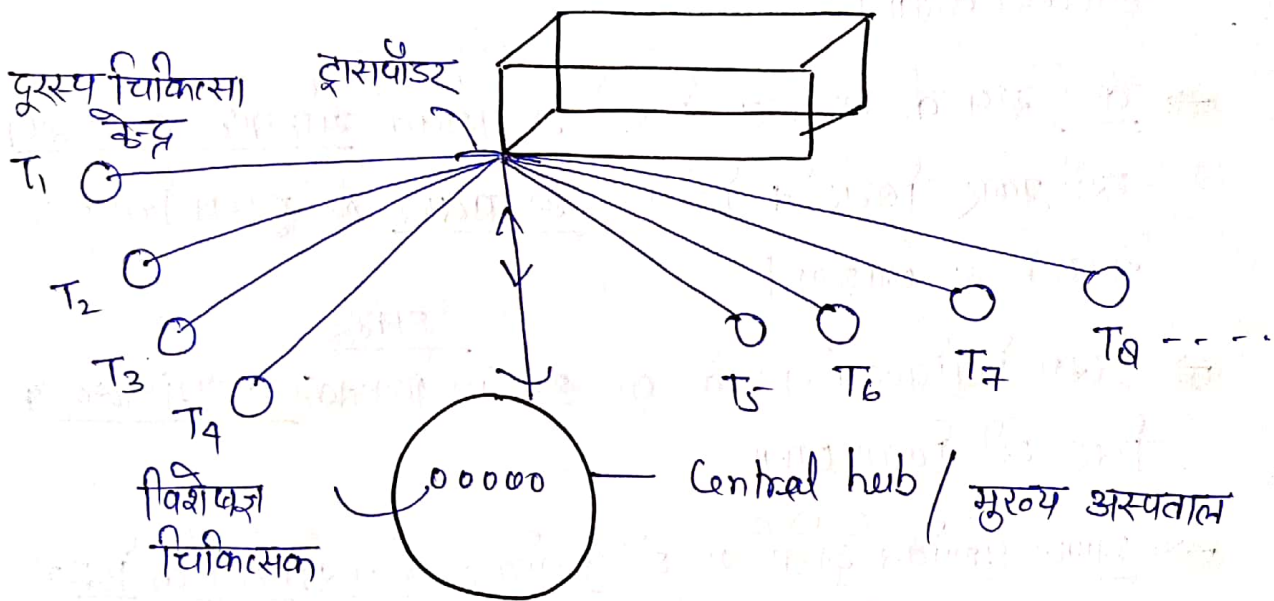 दूरस्थ चिकित्सा
केन्द्र
ट्रांसपॉडर
T1
T2
T3
T4
T5
T6
T7
T8 - - - -
विशेषज्ञ
चिकित्सक
Central hub / मुख्य अस्पताल